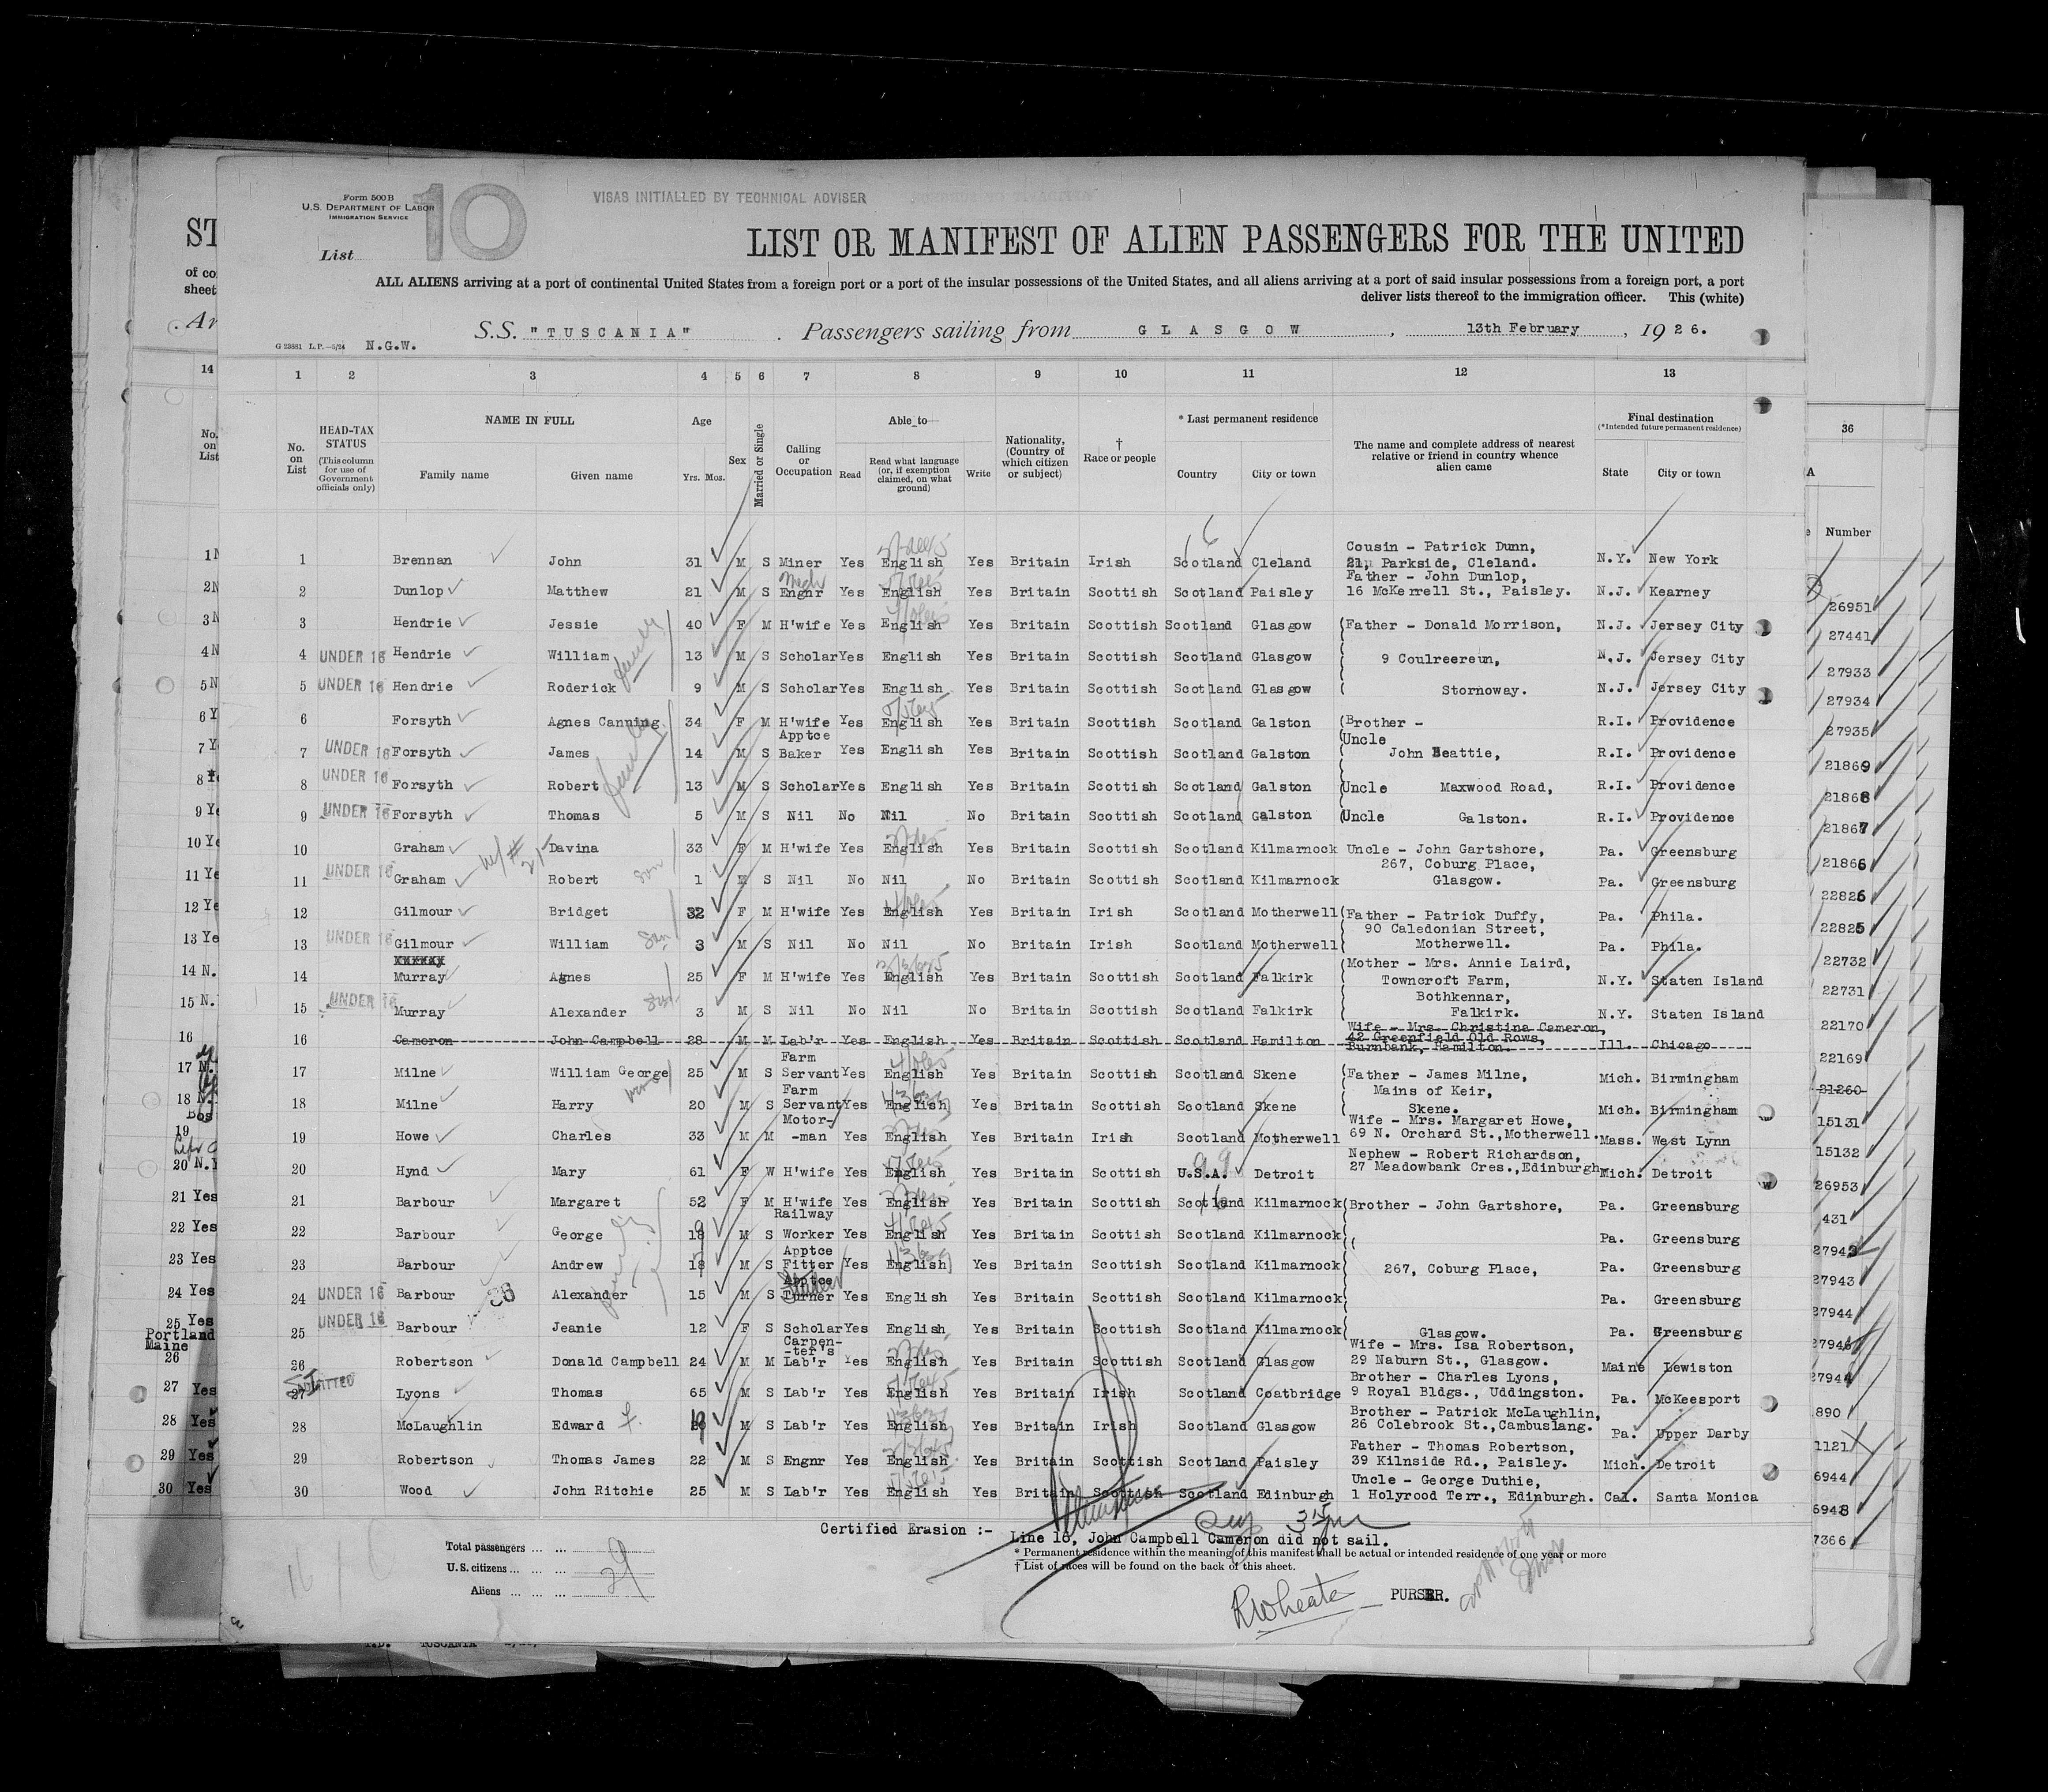 Form 500B
U.S. DEPARTMENT OF LABOR
IMMIGRATION SERVICE
10
VISAS INITIALLED BY TECHNICAL ADVISER
List
LIST OR MANIFEST OF ALIEN PASSENGERS FOR THE UNITED
ALL ALIENS arriving at a port of continental United States from a foreign port or a port of the insular possessions of the United States, and all aliens arriving at a port of said insular possessions from a foreign port, a port
deliver lists thereof to the immigration officer. This (white)
S.S. "TUSCANIA" . Passengers sailing from GLASGOW, 13th February, 1926.
G 23881 L.P.—5/24 N.G.W.
1 2 3 4 5 6 7 8 9 10 11 12 13
No. on List
HEAD-TAX STATUS
(This column for use of Government officials only)
NAME IN FULL
Family name Given name
Age
Yrs. Mos.
Sex
Married or Single
Calling or Occupation
Able to—
Read
Read what language (or, if exemption claimed, on what ground)
Write
Nationality, (Country of which citizen or subject)
† Race or people
* Last permanent residence
Country City or town
The name and complete address of nearest relative or friend in country whence alien came
Final destination
(*Intended future permanent residence)
State City or town
36
Number
1 Brennan John 31 M S Miner Yes English Yes Britain Irish Scotland Cleland Cousin - Patrick Dunn, 21, Parkside, Cleland. N.Y. New York
2 Dunlop Matthew 21 M S Engnr Yes English Yes Britain Scottish Scotland Paisley Father - John Dunlop, 16 McKerrell St., Paisley. N.J. Kearney
3 Hendrie Jessie 40 F M H'wife Yes English Yes Britain Scottish Scotland Glasgow Father - Donald Morrison, N.J. Jersey City
4 UNDER 16 Hendrie William 13 M S Scholar Yes English Yes Britain Scottish Scotland Glasgow 9 Coulreereun, N.J. Jersey City
5 UNDER 16 Hendrie Roderick 9 M S Scholar Yes English Yes Britain Scottish Scotland Glasgow Stornoway. N.J. Jersey City
6 Forsyth Agnes Canning 34 F M H'wife Yes English Yes Britain Scottish Scotland Galston Brother - R.I. Providence
7 UNDER 16 Forsyth James 14 M S Apptce Baker Yes English Yes Britain Scottish Scotland Galston Uncle John Beattie, R.I. Providence
8 UNDER 16 Forsyth Robert 13 M S Scholar Yes English Yes Britain Scottish Scotland Galston Uncle Maxwood Road, R.I. Providence
9 UNDER 16 Forsyth Thomas 5 M S Nil No Nil No Britain Scottish Scotland Galston Uncle Galston. R.I. Providence
10 Graham Davina 33 F M H'wife Yes English Yes Britain Scottish Scotland Kilmarnock Uncle - John Gartshore, 267, Coburg Place, Pa. Greensburg
11 UNDER 16 Graham Robert son 1 M S Nil No Nil No Britain Scottish Scotland Kilmarnock Glasgow. Pa. Greensburg
12 Gilmour Bridget 32 F M H'wife Yes English Yes Britain Irish Scotland Motherwell Father - Patrick Duffy, 90 Caledonian Street, Pa. Phila.
13 UNDER 16 Gilmour William son 3 M S Nil No Nil No Britain Irish Scotland Motherwell Motherwell. Pa. Phila.
14 Murray Agnes 25 F M H'wife Yes English Yes Britain Scottish Scotland Falkirk Mother - Mrs. Annie Laird, Towncroft Farm, N.Y. Staten Island
15 UNDER 16 Murray Alexander son 3 M S Nil No Nil No Britain Scottish Scotland Falkirk Bothkennar, Falkirk. N.Y. Staten Island
16 Cameron John Campbell 28 M M Lab'r Yes English Yes Britain Scottish Scotland Hamilton Wife - Mrs. Christina Cameron, 42 Greenfield Old Rows, Burnbank, Hamilton. Ill. Chicago
17 Milne William George 25 M S Farm Servant Yes English Yes Britain Scottish Scotland Skene Father - James Milne, Mains of Keir, Mich. Birmingham
18 Milne Harry 20 M S Farm Servant Yes English Yes Britain Scottish Scotland Skene Skene. Mich. Birmingham
19 Howe Charles 33 M M Motor-man Yes English Yes Britain Irish Scotland Motherwell Wife - Mrs. Margaret Howe, 69 N. Orchard St., Motherwell. Mass. West Lynn
20 Hynd Mary 61 F W H'wife Yes English Yes Britain Scottish U.S.A. Detroit Nephew - Robert Richardson, 27 Meadowbank Cres., Edinburgh Mich. Detroit
21 Barbour Margaret 52 F M H'wife Yes English Yes Britain Scottish Scotland Kilmarnock Brother - John Gartshore, Pa. Greensburg
22 Barbour George 18 M S Railway Worker Yes English Yes Britain Scottish Scotland Kilmarnock Pa. Greensburg
23 Barbour Andrew 18 M S Apptce Fitter Yes English Yes Britain Scottish Scotland Kilmarnock 267, Coburg Place, Pa. Greensburg
24 UNDER 16 Barbour Alexander 15 M S Apptce Turner Yes English Yes Britain Scottish Scotland Kilmarnock Pa. Greensburg
25 UNDER 16 Barbour Jeanie 12 F S Scholar Yes English Yes Britain Scottish Scotland Kilmarnock Glasgow. Pa. Greensburg
26 Robertson Donald Campbell 24 M M Carpen-ter's Lab'r Yes English Yes Britain Scottish Scotland Glasgow Wife - Mrs. Isa Robertson, 29 Naburn St., Glasgow. Maine Lewiston
27 Lyons Thomas 65 M S Lab'r Yes English Yes Britain Irish Scotland Coatbridge Brother - Charles Lyons, 9 Royal Bldgs., Uddingston. Pa. McKeesport
28 McLaughlin Edward M S Lab'r Yes English Yes Britain Irish Scotland Glasgow Brother - Patrick McLaughlin, 26 Colebrook St., Cambuslang. Pa. Upper Darby
29 Robertson Thomas James 22 M S Engnr Yes English Yes Britain Scottish Scotland Paisley Father - Thomas Robertson, 39 Kilnside Rd., Paisley. Mich. Detroit
30 Wood John Ritchie 25 M S Lab'r Yes English Yes Britain Scottish Scotland Edinburgh Uncle - George Duthie, 1 Holyrood Terr., Edinburgh. Cal. Santa Monica
26951
27441
27933
27934
27935
21869
21868
21867
21866
22826
22825
22732
22731
22170
22169
21260
15131
15132
26953
431
27942
27943
27944
27946
27944
890
1121
6944
6948
7366
Certified Erasion :- Line 16, John Campbell Cameron did not sail.
* Permanent residence within the meaning of this manifest shall be actual or intended residence of one year or more
† List of races will be found on the back of this sheet.
Total passengers ... ...
U.S. citizens ... ... ...
Aliens ... ... ... ...
29
PURSER.